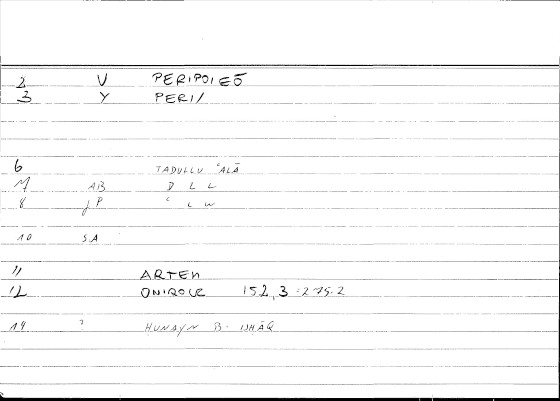 2 V PERIPOIEŌ
3 Y PERI/
6 TADULLU ʿALĀ
7 AB D L L
8 JP ʿ L W
10 SA
11 ARTEM
12 ONIROCR 152,3:275.2
14 HUNAYN B. ISHĀQ